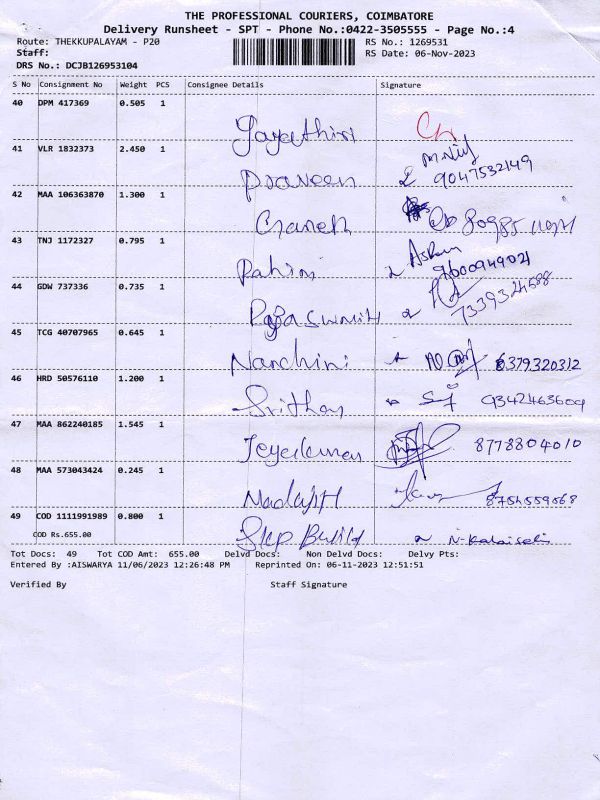 THE PROFESSIONAL COURIERS, COIMBATORE
Delivery Runsheet - SPT - Phone No.:0422-3505555 - Page No.:4
Route: THEKKUPALAYAM - P20 RS No.: 1269531
Staff: RS Date: 06-Nov-2023
DRS No.: DCJB126953104
S No Consignment No Weight PCS Consignee Details Signature
40 DPM 417369 0.505 1
Gayathiri
41 VLR 1832373 2.450 1
Praveen 9047532149
42 MAA 106363870 1.300 1
Ganesh
43 TNJ 1172327 0.795 1
Rahini 9600949021
44 GDW 737336 0.735 1
7339324588
45 TCG 40707965 0.645 1
Nanchini 6379320312
46 HRD 50576110 1.200 1
Srithar 9342463609
47 MAA 862240185 1.545 1
Jeyakumar 8778804010
48 MAA 573043424 0.245 1
8754559568
49 COD 1111991989 0.800 1
COD Rs.655.00 Build N-Kalaiselvi
Tot Docs: 49 Tot COD Amt: 655.00 Delvd Docs: Non Delvd Docs: Delvy Pts:
Entered By :AISWARYA 11/06/2023 12:26:48 PM Reprinted On: 06-11-2023 12:51:51
Verified By Staff Signature